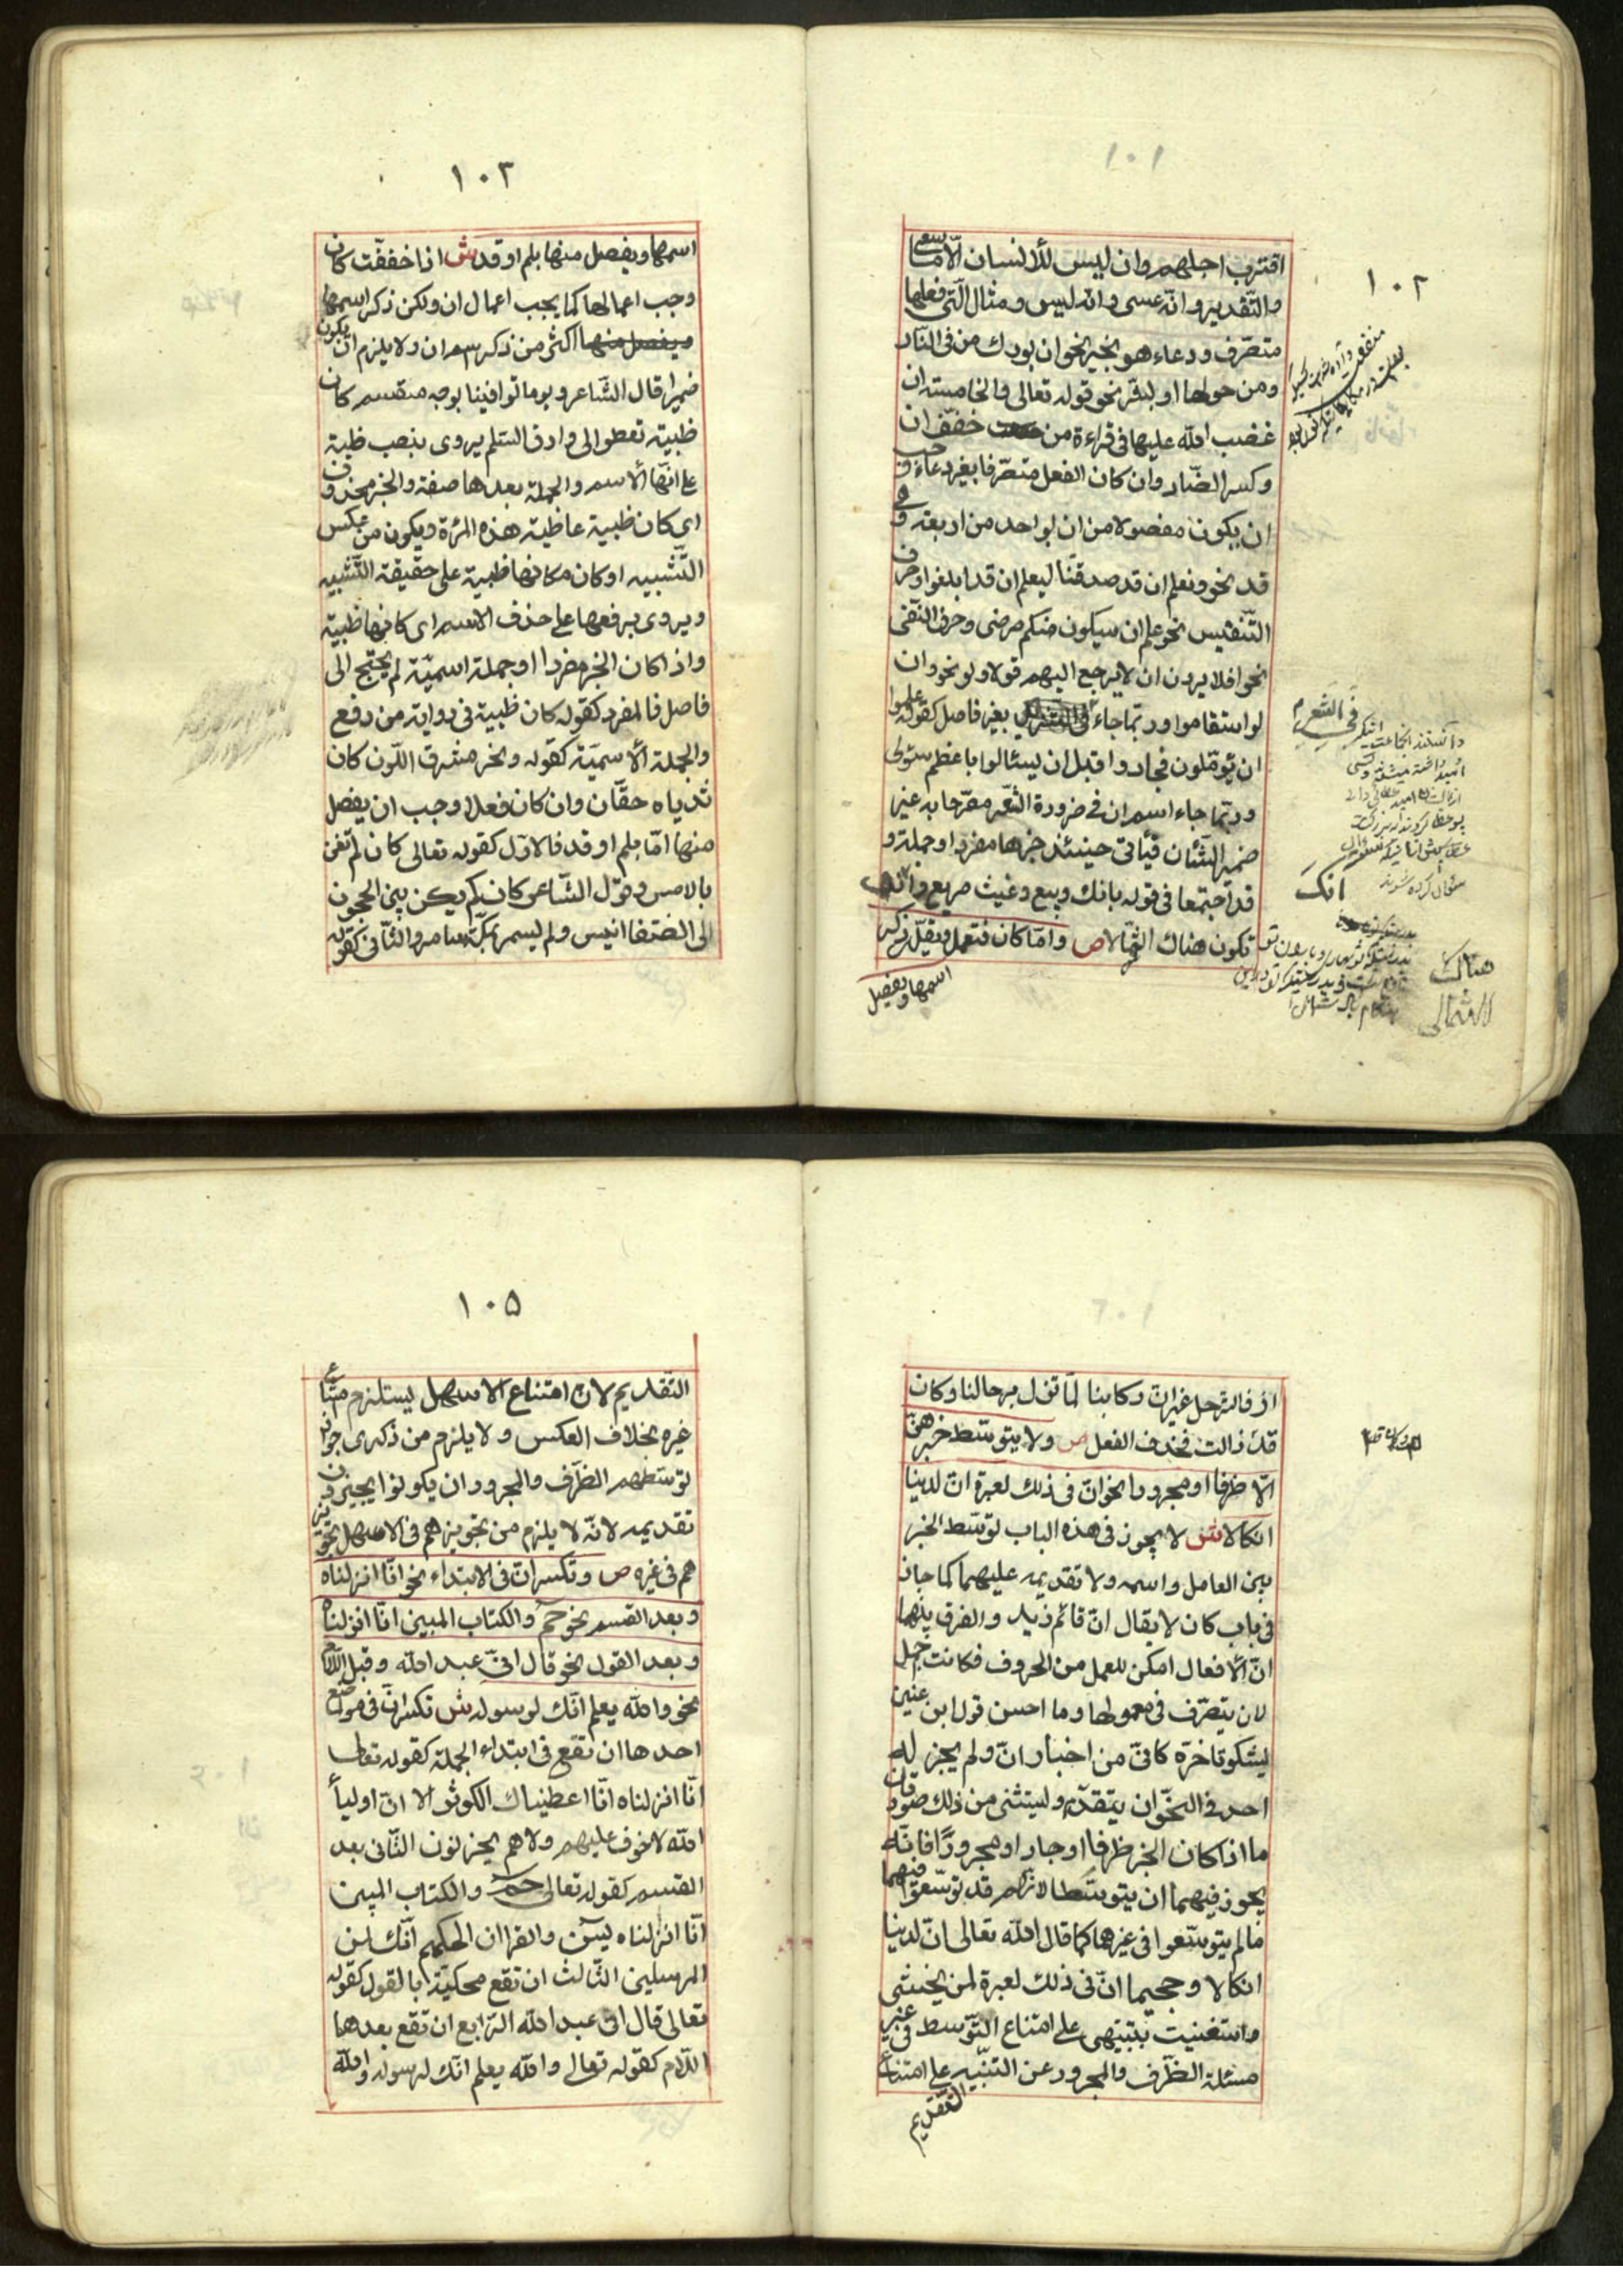 ١٠٢
اقترب اجلهم وان ليس للأنسان الّا ما سعى
والتّقدير وانّه عسى وانّه ليس ومثال الّتى فعلها
متصّرف ودعاء هو بخير نحو ان بورك من فى النّار
ومن حولها او لبقّر نحو قوله تعالى والخامسة ان
غضب الله عليها فى قراءة من خفّف ان
وكسر الضّاد وان كان الفعل متصّرفا بغير دعاء وجب
ان يكون مفصولا من ان بواحد من اربعة وهى
قد نحو ونعلم ان قد صدقتنا ليعلم ان قد ابلغوا وحرف
التّنفيس نحو علم ان سيكون منكم مرضى وحرف النّفى
نحو افلا يرون ان لا يرجع اليهم قولا ولو نحو وان
لو استقاموا وربّما جاء فى الشعر بغير فاصل كقوله علموا
ان يؤمّلون فجادوا قبل ان يسئالوا باعظم سئولى
وربّما جاء اسم ان فى ضرورة الشّعر مصّرحا به غير
ضمير الشّان فيأتى حينئذ خبرها مفردا وجملة و
قد اجتمعا فى قوله بانك ربيع وغيث مريع وانّك
تكون هناك الثمّالا ص وامّا كان فتعمل ويقلّ ذكر
اسمها ويفصل
فى الشعر
انك
هناك
الثمالى
١٠٣
اسمها ويفصل منها بلم او قد ش اذا خففّت كان
وجب اعمالها كما يجب اعمال ان ولكن ذكر اسمها
اكثر من ذكر اسم ان ولا يلزم ان يكون
ضميرا قال الشّاعر ويوما توافينا بوجه مقسم كان
ظبية تعطو الى وارق السّلم يروى بنصب ظبية
على انّها الاسم والجملة بعدها صفة والخبر محذوف
اى كان ظبية عاطية هذه المرئة ويكون من عكس
التّشبيه او كان مكانها ظبية على حقيقة التّشبيه
ويروى برفعها على حذف الاسم اى كانها ظبية
واذا كان الخبر مفردا او جملة اسميّة لم يحتج الى
فاصل فالمفرد كقوله كان ظبية فى رواية من رفع
والجملة الاسميّة كقوله ونحر مشرق اللّون كان
ثدياه حقّان وان كان فعلا وجب ان يفصل
منها امّا بلم او قد فالاوّل كقوله تعالى كان لم تغن
بالامس وقول الشّاعر كان لم يكن بين الحجون
الى الصّفا انيس ولم يسمر بمكّة سامر والثّانى كقوله
اذف الترحل غير انّ ركابنا لمّا تزل برحالنا وكان
قدن زالت فحذف الفعل ص ولا يتوسّط خبرهنّ
الّا ظرفا او مجرورا نحو انّ فى ذلك لعبرة انّ لدينا
انكالا ش لا يجوز فى هذه الباب توسّط الخبر
بين العامل واسمه ولا تقديمه عليهما كما جاز
فى باب كان لا يقال انّ قائم زيد والفرق بينهما
انّ الافعال امكن للعمل من الحروف فكانت احمل
لان يتصّرف فى معمولها وما احسن قول ابن عنين
ليشكو تاخرّه كانّى من اخبار انّ ولم يجز له
احد فى النحّو ان يتقدّم وليتثنى من ذلك صورتان
ما اذا كان الخبر ظرفا او جار او مجرورًا فانّه
يجوز فيهما ان يتوسّطا لانّهم قد توسّعوا فيهما
ما لم يتوسّعوا فى غيرها كما قال الله تعالى انّ لدينا
انكالا وجحيما انّ فى ذلك لعبرة لمن يخشى
واستغنيت بتنبيهى على امتناع التّوسط فى غير
مسئلة الظّرف والمجرور عن التنّبيه على امتناع
التّقديم
١٠٥
التقديم لان امتناع الاسهل يستلزم امتناع
غيره بخلاف العكس ولا يلزم من ذكرى جواز
توسّطهم الظّرف والمجرور ان يكونوا يجيزون
تقديمه لانّه لا يلزم من تجويزهم فى الاسهل تجويز
هم فى غيره ص وتكسر انّ فى الابتداء نحو انّا انزلناه
وبعد القسم نحو حمۤ والكتاب المبين انّا انزلناه
وبعد القول نحو قال انىّ عبد الله وقبل اللّام
نحو والله يعلم انّك لرسوله ش تكسر انّ فى مواضع
احدها ان تقع فى ابتداء الجملة كقوله تعالى
انّا انزلناه انّا اعطيناك الكوثر الا انّ اولياء
الله لا خوف عليهم ولا هم يحزنون الثّانى بعد
القسم كقوله تعالى حمۤ والكتاب المبين
انّا انزلناه يسۤ والقران الحكيم انّك لمن
المرسلين الثّالث ان تقع محكيّة بالقول كقوله
تعالى قال انى عبد الله الرّابع ان تقع بعدها
اللّام كقوله تعالى والله يعلم انّك لرسوله والله